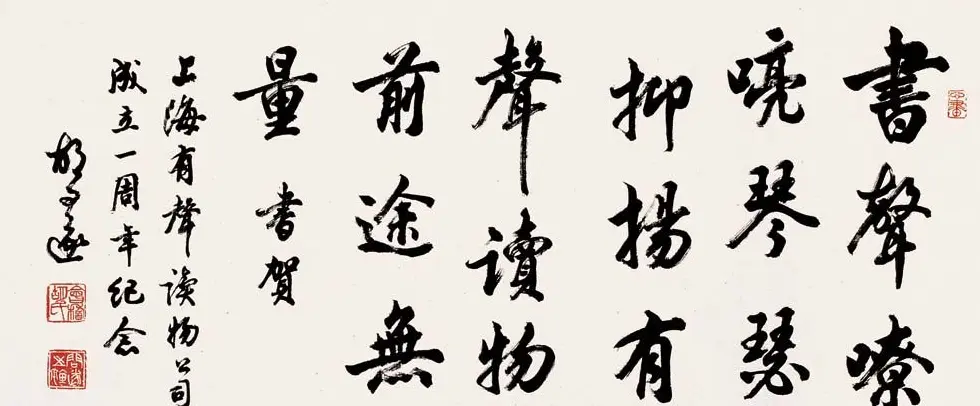 書聲嘹
喨琴瑟
抑揚有
聲讀物
前途無
量 书賀
上海有聲读物公司
成立一周年纪念
胡问遂